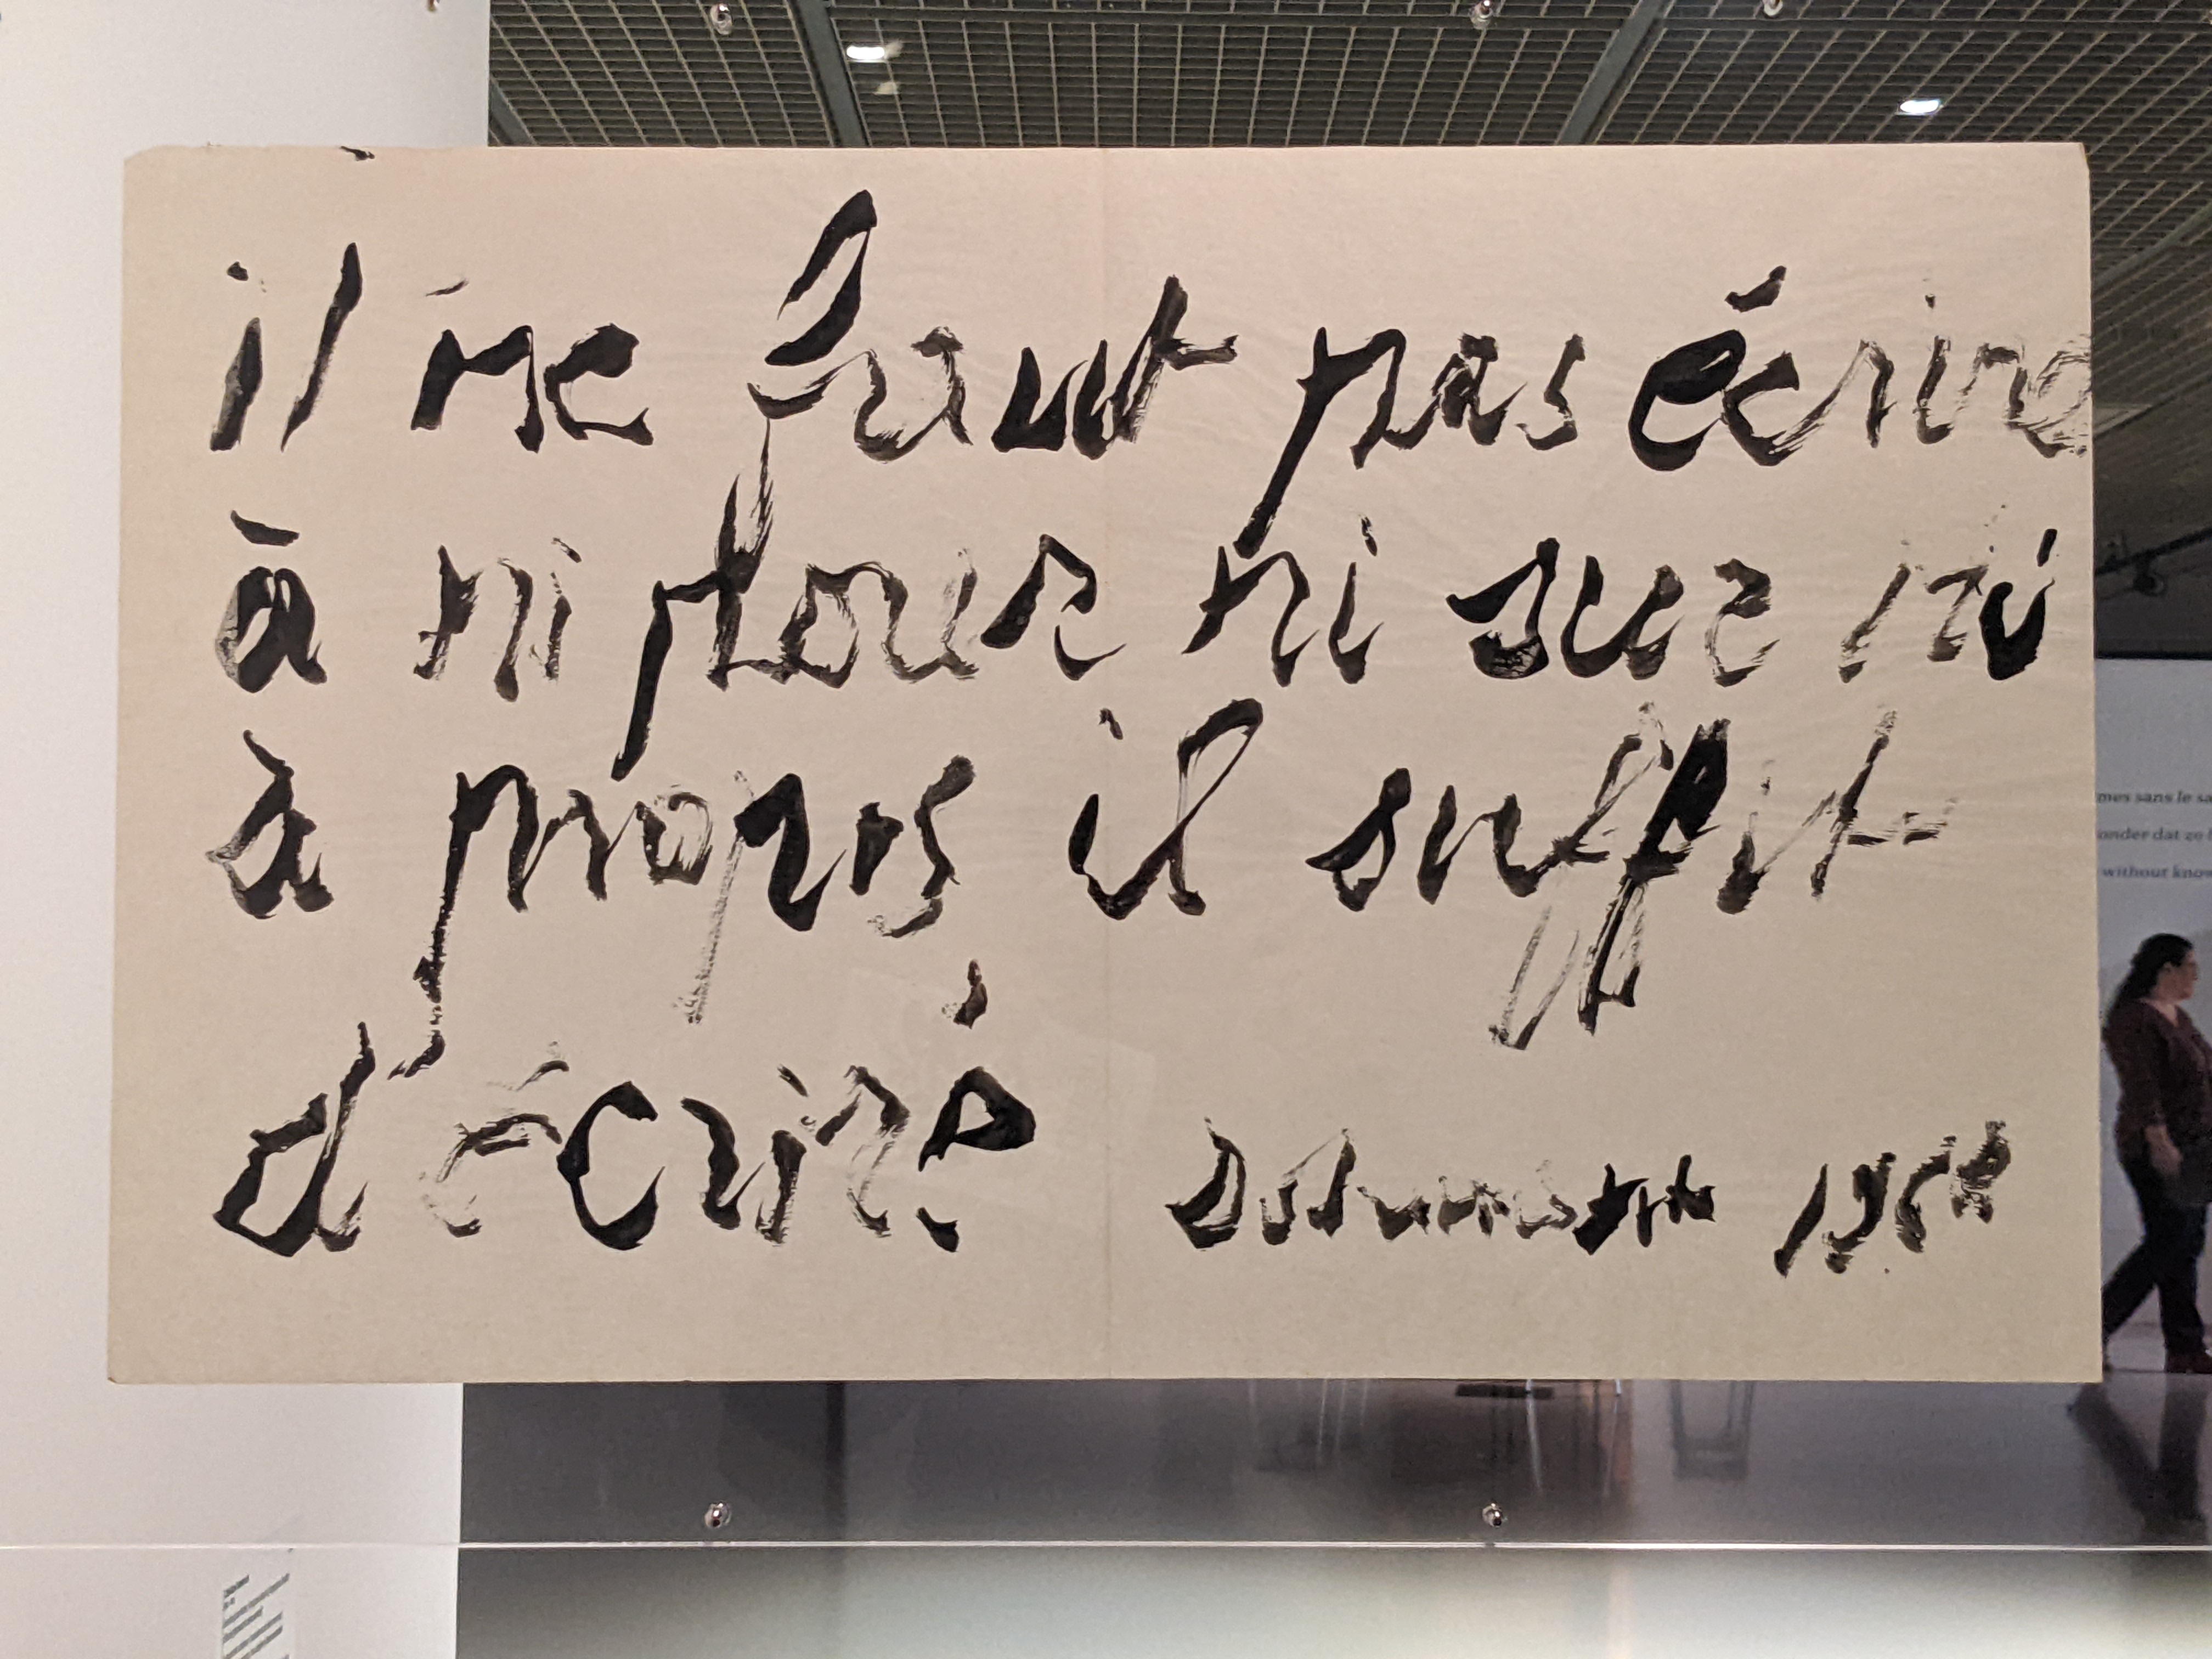 il ne faut pas écrire
à ni pour ni sur ni
à propos, il suffit
d'écrire
Dotremont 1968
mes sans le sa
onder dat ze
without know